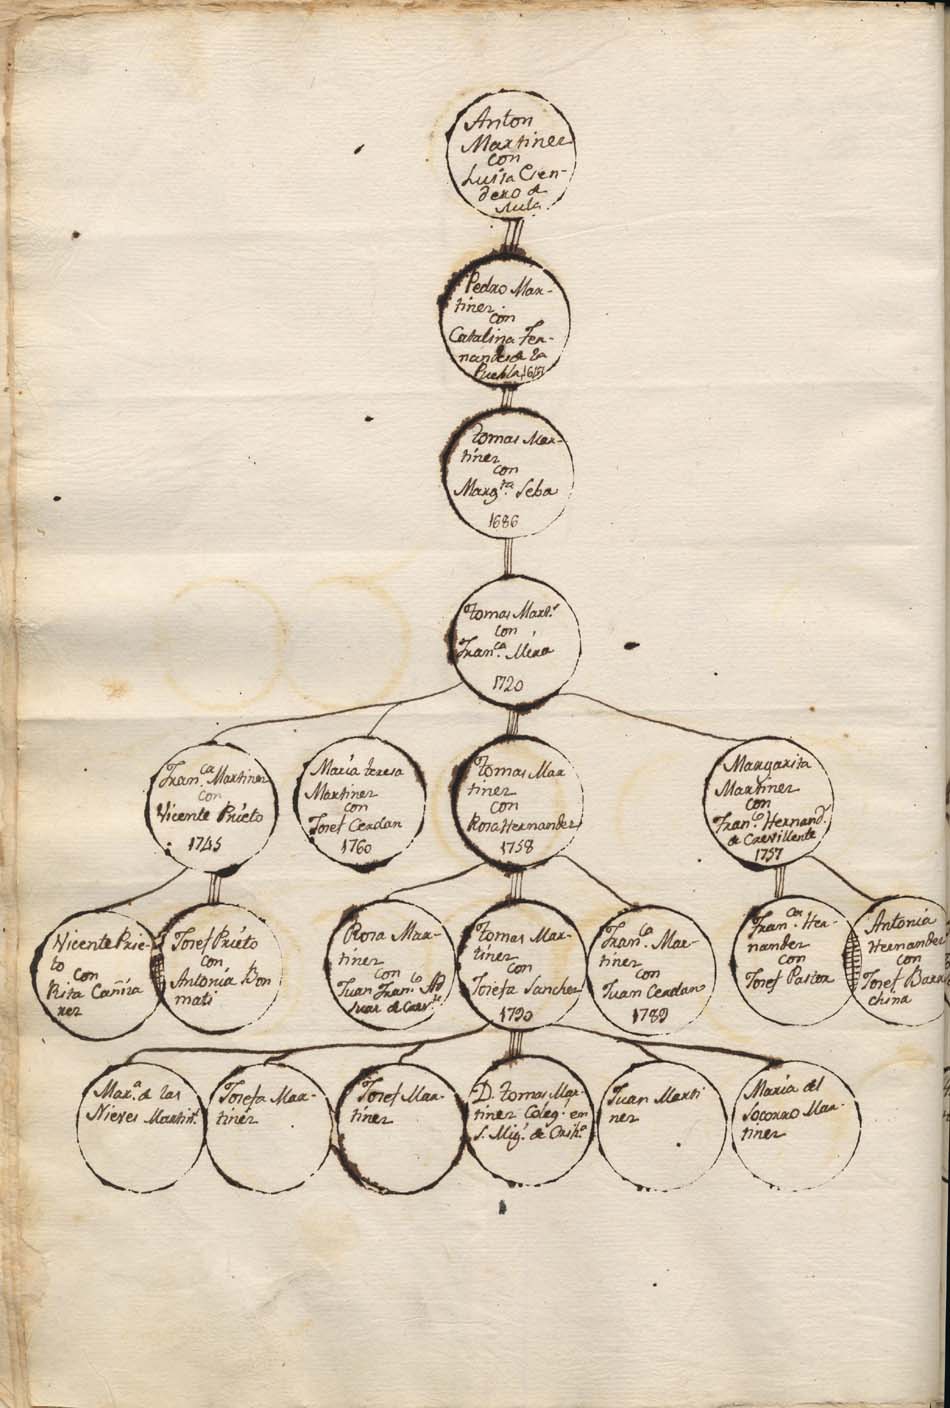 Anton
Martinez
con
Luisa Cien-
dero de
Mula
Pedro Mar-
tinez
con
Catalina Fer-
nandes de la
Puebla
tomas Mar-
tinez
con
Marg.ta Seba
1686
tomas Mart.z
con
Fran.ca Mira
1720
Fran.ca Martinez
con
Vicente Prieto
1745
Maria teresa
Martinez
con
Josef Cerdan
1760
tomas Mar
tinez
con
Rosa Hernandez
1758
Margarita
Martinez
con
Fran.co Hernand.z
de Crevillente
1757
Vicente Prie-
to con
Rita Cañiza
rez
Josef Prieto
con
Antonia Bon
mati
Rosa Mar-
tinez
con
Juan Fran.co
de
tomas Mar-
tinez
con
Josefa Sanchez
1790
Fran.ca Mar-
tinez
con
Juan Cerdan
1789
Fran.ca Her-
nandez
con
Josef Pastor
Antonia
Hernandez
con
Josef Barra
china
Mar.a de las
Nieves Martin.z
Josefa Mar-
tinez
Josef Mar-
tinez
D. tomas Mar-
tinez Coleg. en
S. Mig.l de Orih.a
Juan Marti
nez
Maria del
Socorro Mar-
tinez